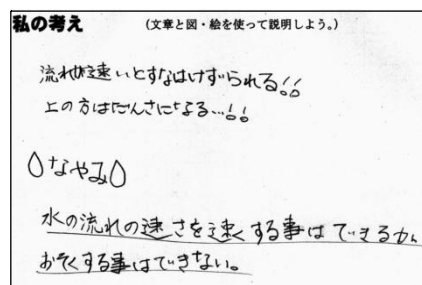 私の考え （文章と図・絵を使って説明しよう。）
流れが速いとすなはけずられる!!
上の方はだんさになる…!!
なやみ
水の流れの速さを速くする事はできるが、
おそくする事はできない。